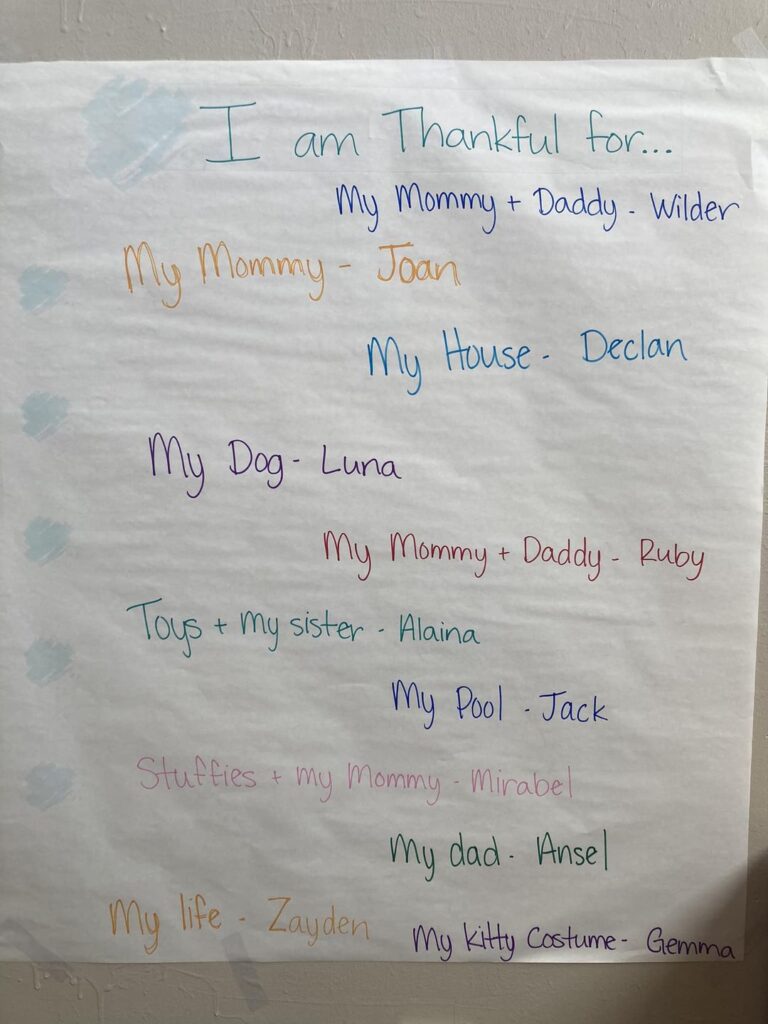 I am Thankful for...
My Mommy + Daddy - Wilder
My Mommy - Joan
My House - Declan
My Dog - Luna
My Mommy + Daddy - Ruby
Toys + my sister - Alaina
My Pool - Jack
Stuffies + my Mommy - Mirabel
My dad - Ansel
My life - Zayden
My Kitty Costume - Gemma